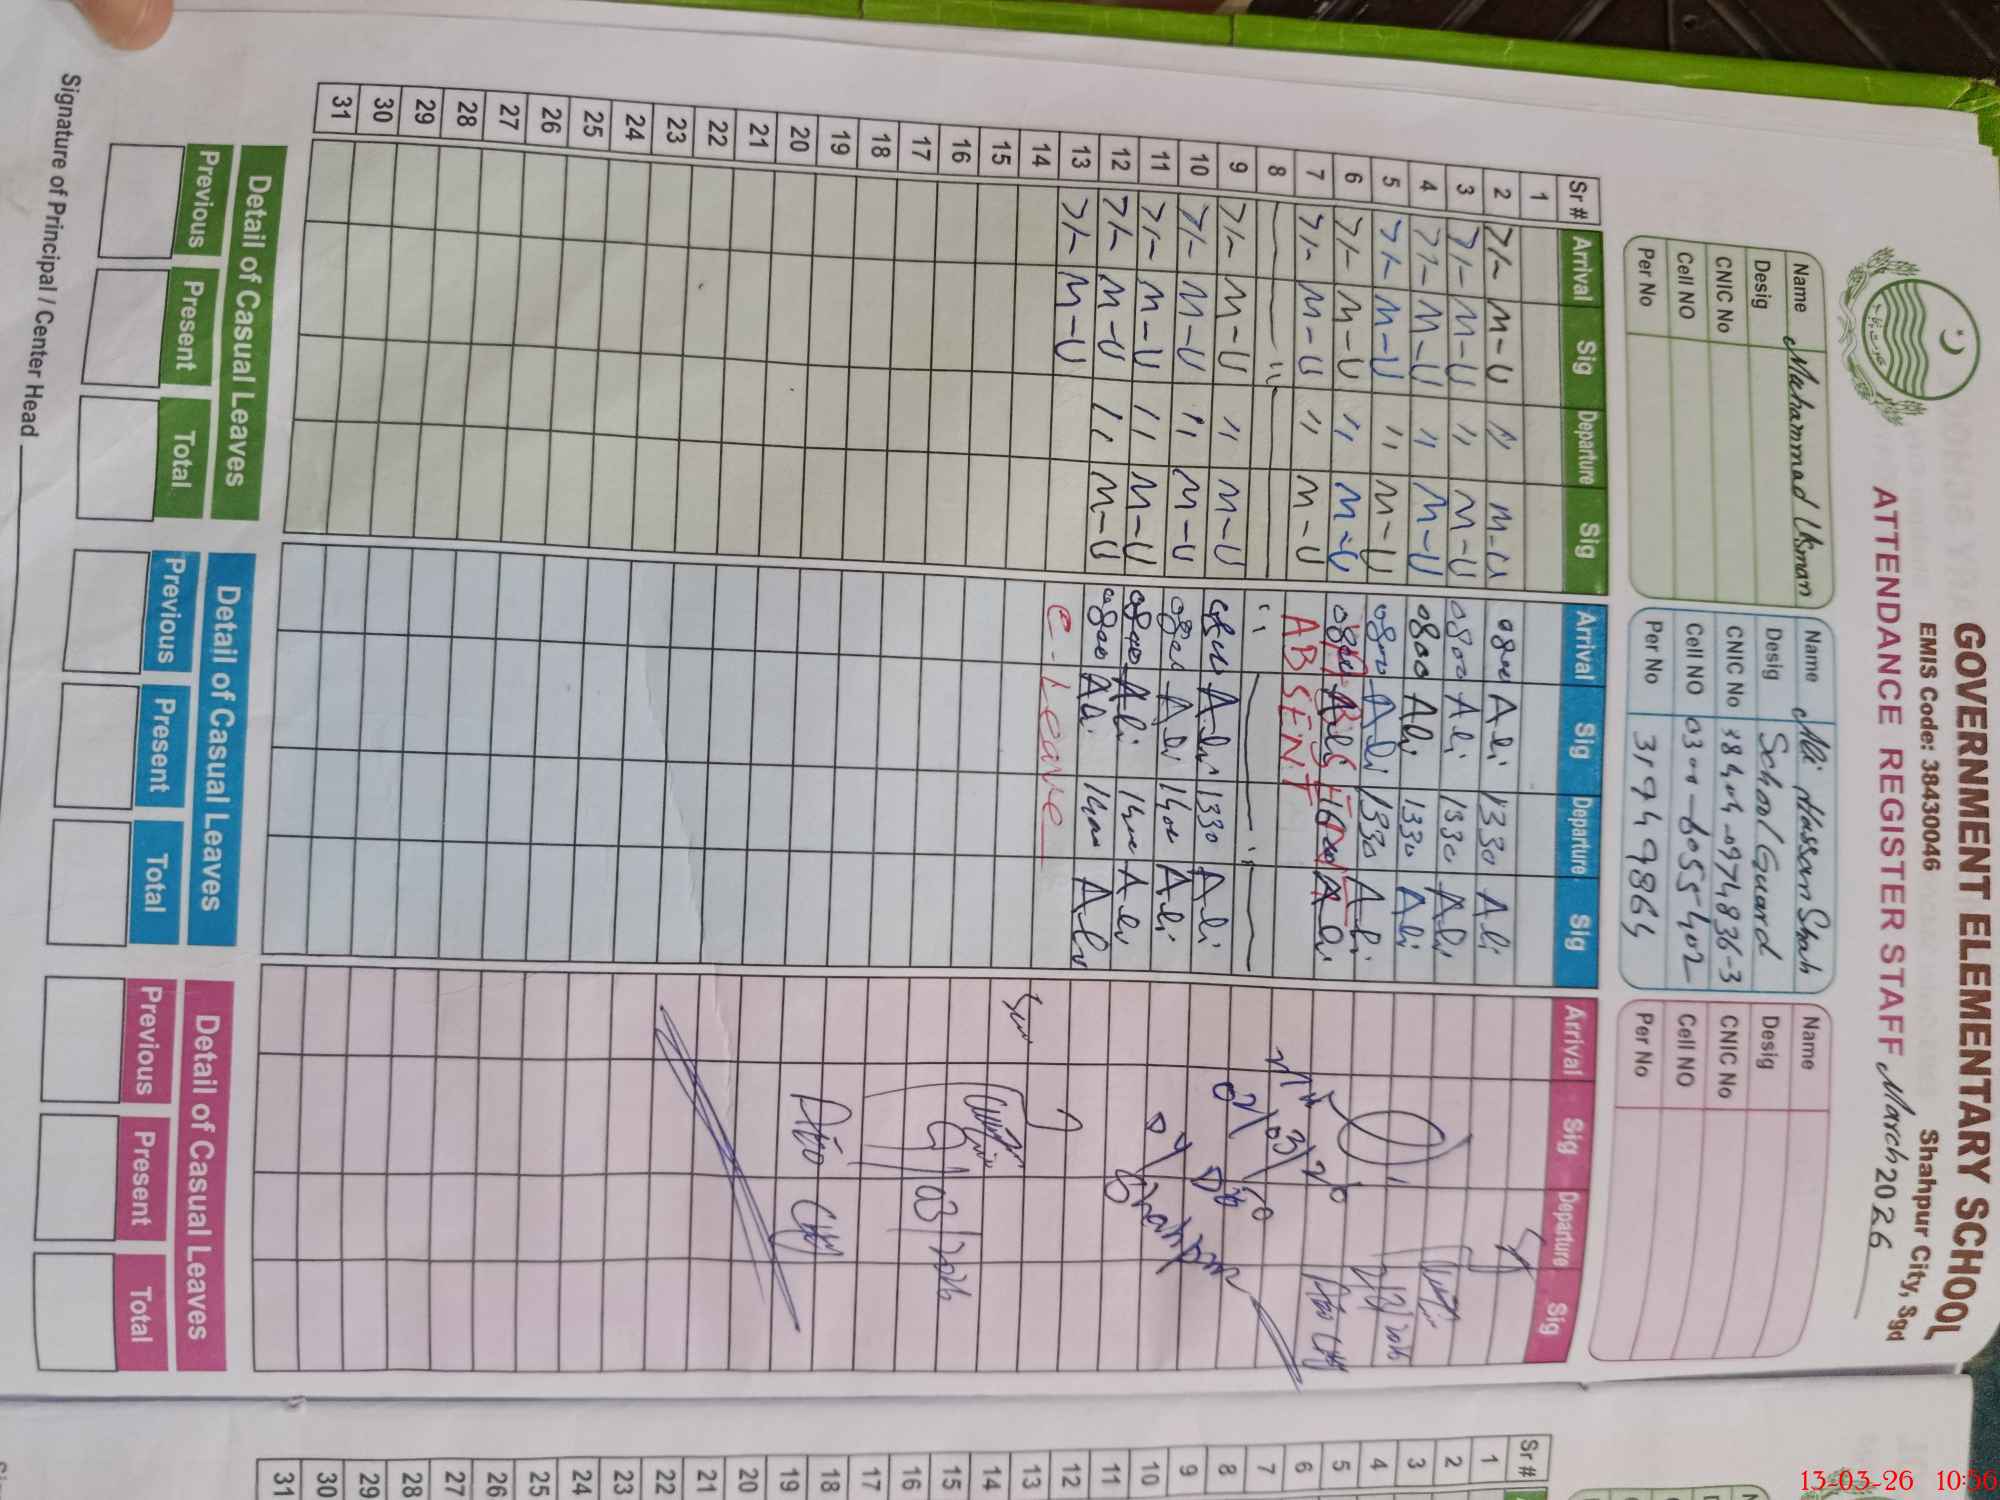 GOVERNMENT ELEMENTARY SCHOOL
EMIS Code: 38430046 Shahpur City, Sgd
ATTENDANCE REGISTER STAFF March 2026
Name Muhammad Usman
Desig
CNIC No
Cell NO
Per No
Name Ali Hassan Shah
Desig School Guard
CNIC No 38404-0974836-3
Cell NO 0300-6055402
Per No
Name
Desig
CNIC No
Cell NO
Per No
Sr # Arrival Sig Departure Sig Arrival Sig Departure Sig Arrival Sig Departure Sig
1
2 M-U " M-U 0800 Ali 1330 Ali
3 M-U " M-U 0800 Ali 1330 Ali
4 M-U " M-U 0800 Ali 1330 Ali
5 M-U " M-U 0800 Ali 1330 Ali
6 M-U " M-U 0800 Ali
7 M-U " M-U ABSENT
8
9 M-U " M-U Ali 1330 Ali
10 M-U " M-U Ali Ali
11 M-U " M-U 0800 Ali Ali
12 M-U " M-U 0800 Ali Ali
13 M-U C-Leave
14
15
16
17
18
19
20
21
22
23
24
25
26
27
28
29
30
31
Shahpur
03/2026
Detail of Casual Leaves
Previous Present Total
Detail of Casual Leaves
Previous Present Total
Detail of Casual Leaves
Previous Present Total
Signature of Principal / Center Head
Sr #
1
2
3
4
5
6
7
8
9
10
11
12
13
14
15
16
17
18
19
20
21
22
23
24
25
26
27
28
29
30
31
13-03-26 10:56